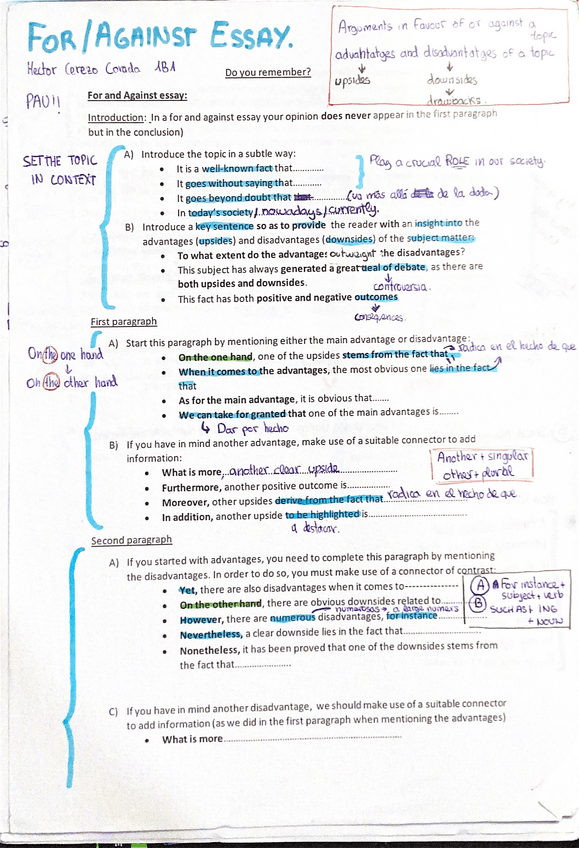 FOR/AGAINST ESSAY.
Hector Cerezo Corada 1B1
Do you remember?
Arguments in favour of or against a
topic
aduahtatges and disaduahtatges of a topic
upsides downsides
drawbacks.
PAU!!
For and Against essay:
Introduction: In a for and against essay your opinion does never appear in the first paragraph
but in the conclusion)
SET THE TOPIC
IN CONTEXT
A) Introduce the topic in a subtle way:
• It is a well-known fact that............
• It goes without saying that...........
• It goes beyond doubt that ............ (va más allá de la duda)
• In today's society/nowadays/currently.
Play a crucial ROLE in our society.
B) Introduce a key sentence so as to provide the reader with an insight into the
advantages (upsides) and disadvantages (downsides) of the subject matter:
• To what extent do the advantages outweight the disadvantages?
• This subject has always generated a great deal of debate, as there are
both upsides and downsides.
controversia.
• This fact has both positive and negative outcomes
conseqüences.
First paragraph
A) Start this paragraph by mentioning either the main advantage or disadvantage:
• On the one hand, one of the upsides stems from the fact that
radica en el hecho de que
• When it comes to the advantages, the most obvious one lies in the fact
that
• As for the main advantage, it is obvious that......
• We can take for granted that one of the main advantages is.......
Dar por hecho
On the one hand
On the other hand
B) If you have in mind another advantage, make use of a suitable connector to add
information:
• What is more, another clear upside
• Furthermore, another positive outcome is............
• Moreover, other upsides derive from the fact that radica en el hecho de que
• In addition, another upside to be highlighted is
a destacar.
Another + singular
other + plural
Second paragraph
A) If you started with advantages, you need to complete this paragraph by mentioning
the disadvantages. In order to do so, you must make use of a connector of contrast:
• Yet, there are also disadvantages when it comes to------------
• On the other hand, there are obvious downsides related to......
numerosas → a large numers
• However, there are numerous disadvantages, for instance
• Nevertheless, a clear downside lies in the fact that
• Nonetheless, it has been proved that one of the downsides stems from
the fact that....................
A For instance +
subject + verb
B SUCH AS + ING
+ NOUN
C) If you have in mind another disadvantage, we should make use of a suitable connector
to add information (as we did in the first paragraph when mentioning the advantages)
• What is more